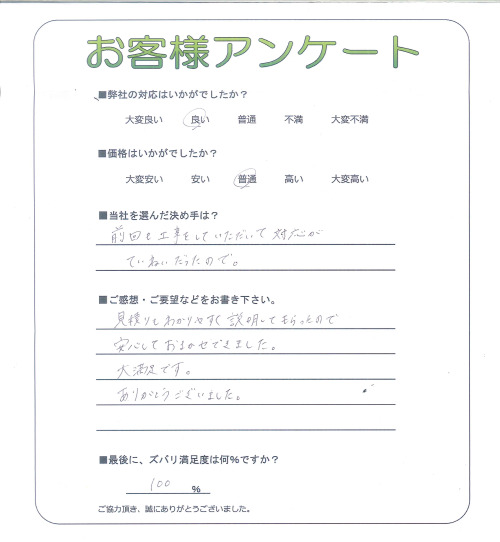 お客様アンケート
■弊社の対応はいかがでしたか？
大変良い 良い 普通 不満 大変不満
■価格はいかがでしたか？
大変安い 安い 普通 高い 大変高い
■当社を選んだ決め手は？
前回も工事をしていただいて対応が
ていねいだったので。
■ご感想・ご要望などをお書き下さい。
見積りもわかりやすく説明してもらったので
安心しておまかせできました。
大満足です。
ありがとうございました。
■最後に、ズバリ満足度は何%ですか？
100 %
ご協力頂き、誠にありがとうございました。